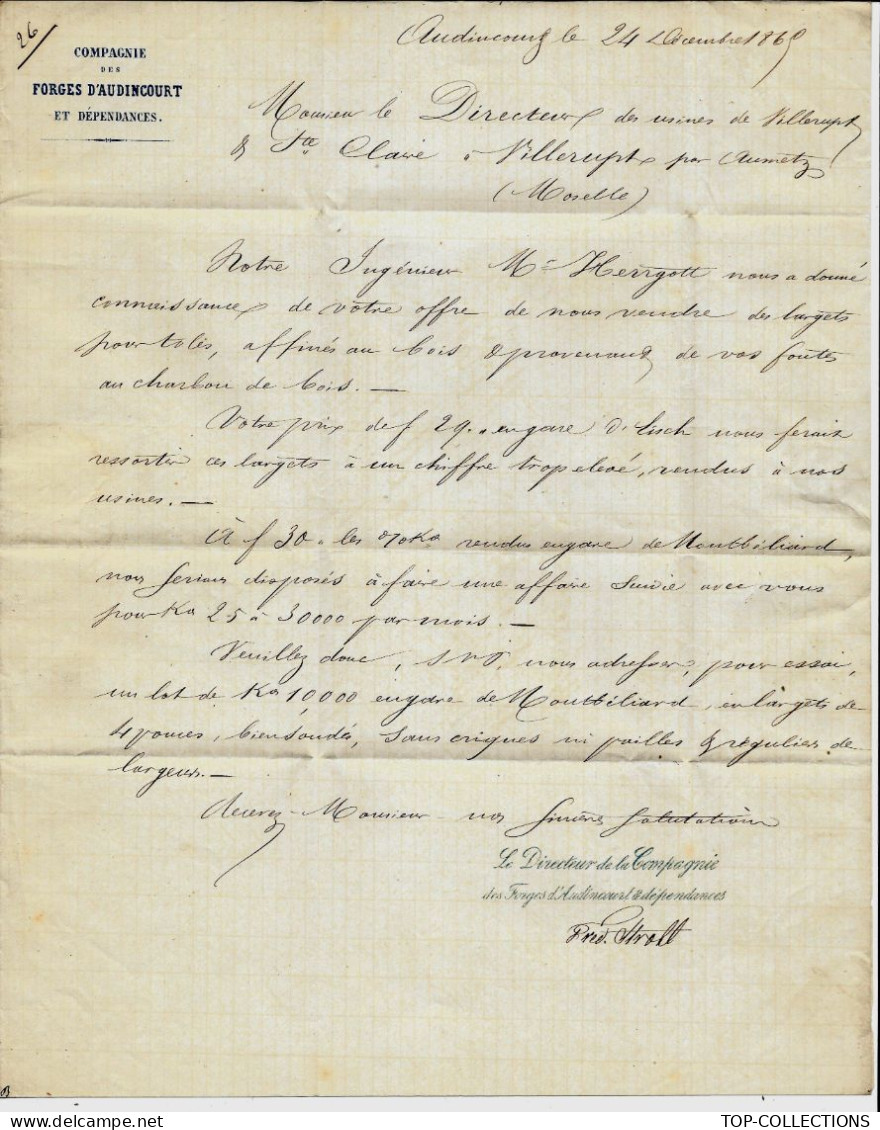 26
COMPAGNIE
DES
FORGES D'AUDINCOURT
ET DÉPENDANCES.
Audincourt le 24 Décembre 1869
Monsieur le Directeur des usines de Villerupt
& Ste Claire à Villerupt par Aumetz
(Moselle)
Notre Ingénieur Mr Herrgott nous a donné
connaissance de votre offre de nous vendre des largets
pour tôles, affinés au bois & provenant de vos fontes
au charbon de bois. —
Votre prix de f 29. " en gare d'Esch nous ferait
ressortir ces largets à un chiffre trop elevé, rendus à nos
usines. —
À f 30 " les %ko rendus en gare de Montbéliard,
nous serions disposés à faire une affaire suivie avec vous
pour Ko 25 à 30000 par mois. —
Veuillez donc, S.V.P. nous adresser, pour essai,
un lot de Ko 10,000 en gare de Montbéliard, en largets de
4 pouces, bien soudés, sans criques ni pailles & réguliers de
largeur. —
Agréez Monsieur nos sincères salutations
Le Directeur de la Compagnie
des Forges d'Audincourt & dépendances
Fred. Strohl
TOP-COLLECTIONS